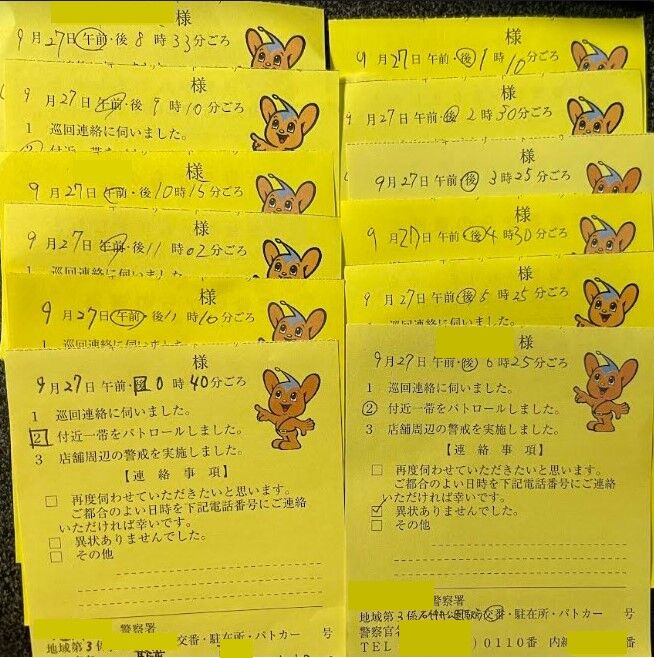 様
9月27日 午前・後 8時33分ごろ
様
9月27日 午前・後 9時10分ごろ
1 巡回連絡に伺いました。
様
9月27日 午前・後 10時15分ごろ
様
9月27日 午前・後 11時02分ごろ
様
9月27日 午前・後 11時10分ごろ
様
9月27日 午前・後 0時40分ごろ
1 巡回連絡に伺いました。
2 付近一帯をパトロールしました。
3 店舗周辺の警戒を実施しました。
【連絡事項】
□ 再度伺わせていただきたいと思います。
ご都合のよい日時を下記電話番号にご連絡
いただければ幸いです。
□ 異状ありませんでした。
□ その他
警察署
地域第3係 交番・駐在所・パトカー 号
様
9月27日 午前・後 1時10分ごろ
様
9月27日 午前・後 2時30分ごろ
様
9月27日 午前・後 3時25分ごろ
様
9月27日 午前・後 4時30分ごろ
様
9月27日 午前・後 5時25分ごろ
様
9月27日 午前・後 6時25分ごろ
1 巡回連絡に伺いました。
2 付近一帯をパトロールしました。
3 店舗周辺の警戒を実施しました。
【連絡事項】
□ 再度伺わせていただきたいと思います。
ご都合のよい日時を下記電話番号にご連絡
いただければ幸いです。
☑ 異状ありませんでした。
□ その他
警察署
地域第3係 交番・駐在所・パトカー 号
警察官
TEL )0110番 内線